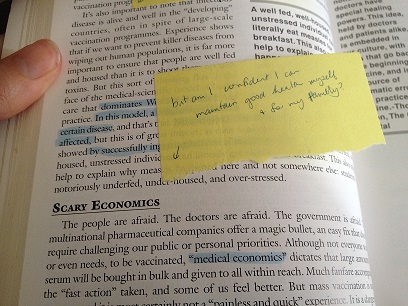 vaccination prog
It's also important to note that infectious
disease is alive and well in the "developing"
countries, often in spite of large-scale
vaccination programmes. Experience shows
that if we want to prevent killer diseases from
wiping out human populations, it is far more
important to ensure that people are well fed
and housed than it is to
toxins. But this sort of
face of the medical-scien
care that dominates W
practice. In this model, a
certain disease, and that's t
affected, but this is of gr
showed by successfully ing
housed, unstressed individ
help to explain why meas here and not somewhere else: stude
notoriously underfed, under-housed, and over-stressed.
but am I confident I can
maintain good health myself
& for my family?
A well fed, well-hou
unstressed individual
literally eat measles
breakfast. This also
help to explain
doctors have
special powers
This idea
help by doctors
and patients
embedded in
culture, with
that go back
beginning
SCARY ECONOMICS
The people are afraid. The doctors are afraid. The government is afraid
multinational pharmaceutical companies offer a magic bullet, an easy fix that
require challenging our public or personal priorities. Although not everyone
or even needs, to be vaccinated, "medical economics" dictates that large amou
serum will be bought in bulk and given to all within reach. Much fanfare accomp
the "fast action" taken, and some of us feel better. But mass vaccination is
most certainly not a "painless and quick" experience. It is a da